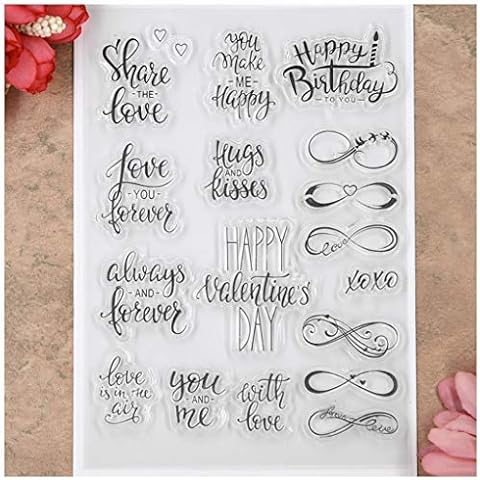 Share
-THE-
love
you
Make
-ME-
Happy
Happy
Birthday
-TO YOU-
love
-YOU-
forever
Hugs
AND
kisses
love
HAPPY
Valentine's
DAY
xoxo
always
-AND-
forever
love
is in the
air
you
-AND-
me
with
love
love love